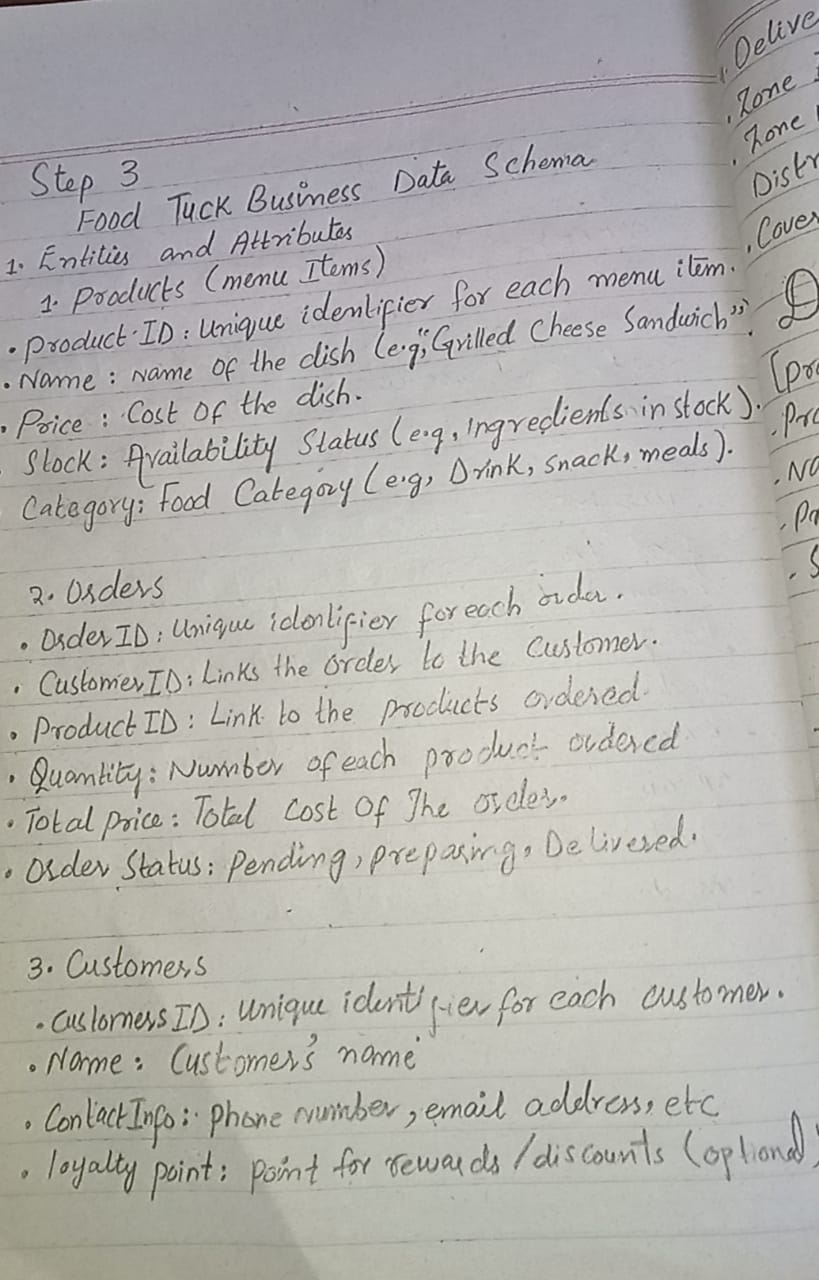 Step 3
Food Tuck Business Data Schema
1. Entities and Attributes
1. Products (menu Items)
• Product ID : Unique identifier for each menu item.
• Name : Name of the dish (e.g, "Grilled Cheese Sandwich")
• Price : Cost of the dish.
Stock : Availability Status (e.g, Ingredients in stock).
Category: Food Category (e.g, Drink, snack, meals).
2. Orders
• Order ID : Unique identifier for each order.
• Customer ID : Links the order to the Customer.
• Product ID : Link to the products ordered.
• Quantity : Number of each product ordered
• Total price : Total Cost Of The order.
• Order Status : Pending, preparing, Delivered.
3. Customers
• Customers ID : Unique identifier for each customer.
• Name : Customer's name
• Contact Info : phone number, email address, etc
• loyalty point : point for rewards / discounts (optional)
Delive
Zone
Zone
Distr
Cover